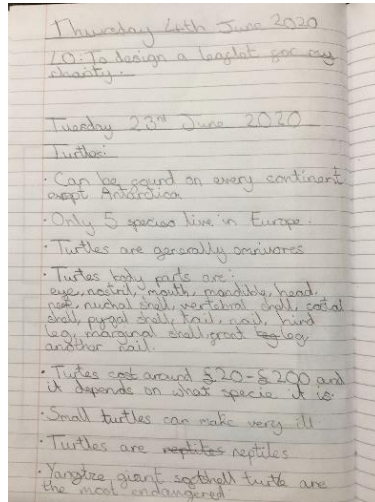 Thursday 4th June 2020
LO: To design a leaflet for my
charity.
Tuesday 23rd June 2020
Turtles:
• Can be found on every continent
exept Antarctica
• Only 5 species live in Europe.
• Turtles are generally omnivores
• Turtes body parts are:
eye, nostril, mouth, mandible, head,
neck, nuchal shell, vertebral shell, costal
shell, pygal shell, tail, nail, hind
leg, marginal shell, front leg,
another nail.
• Turtes cost around £20-£200 and
it depends on what specie it is.
• Small turtles can make very ill
• Turtles are reptiles
• Yangtze giant softshell turtle are
the most endangered